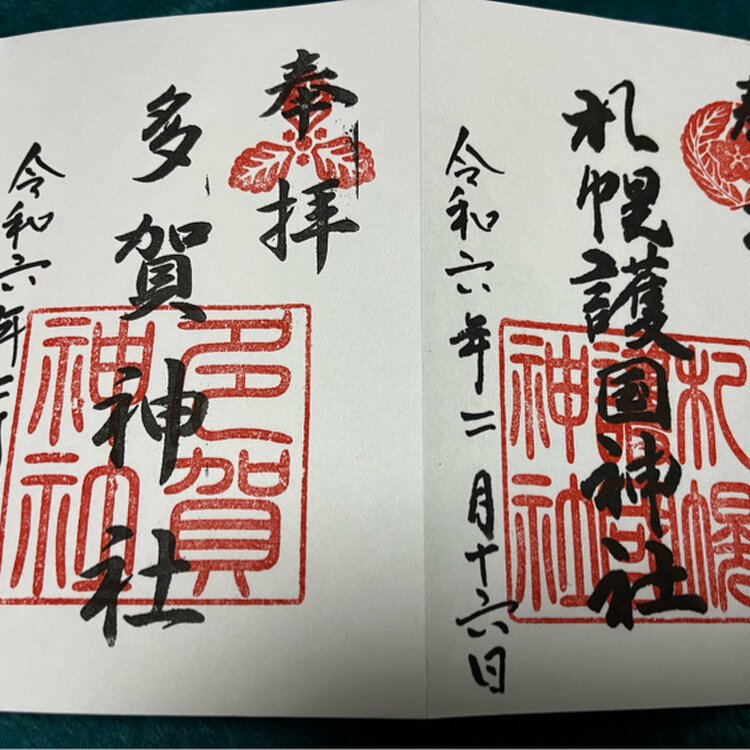 札幌護国神社
令和六年二月十六日
奉拝
多賀神社
令和六年二月
札幌護国神社
多賀神社